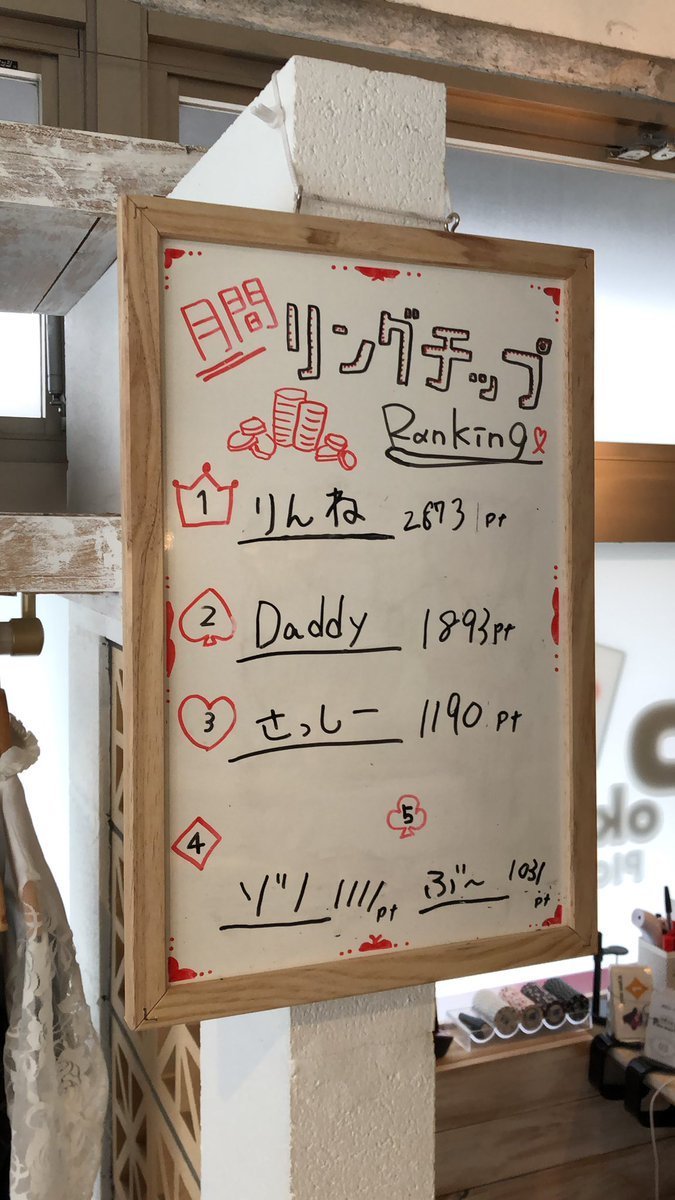 月間 リングチップ
Ranking
1 りんね 2873 pt
2 Daddy 1893pt
3 さっしー 1190 pt
4 ゾノ 1111pt
5 ぶ〜 1031pt